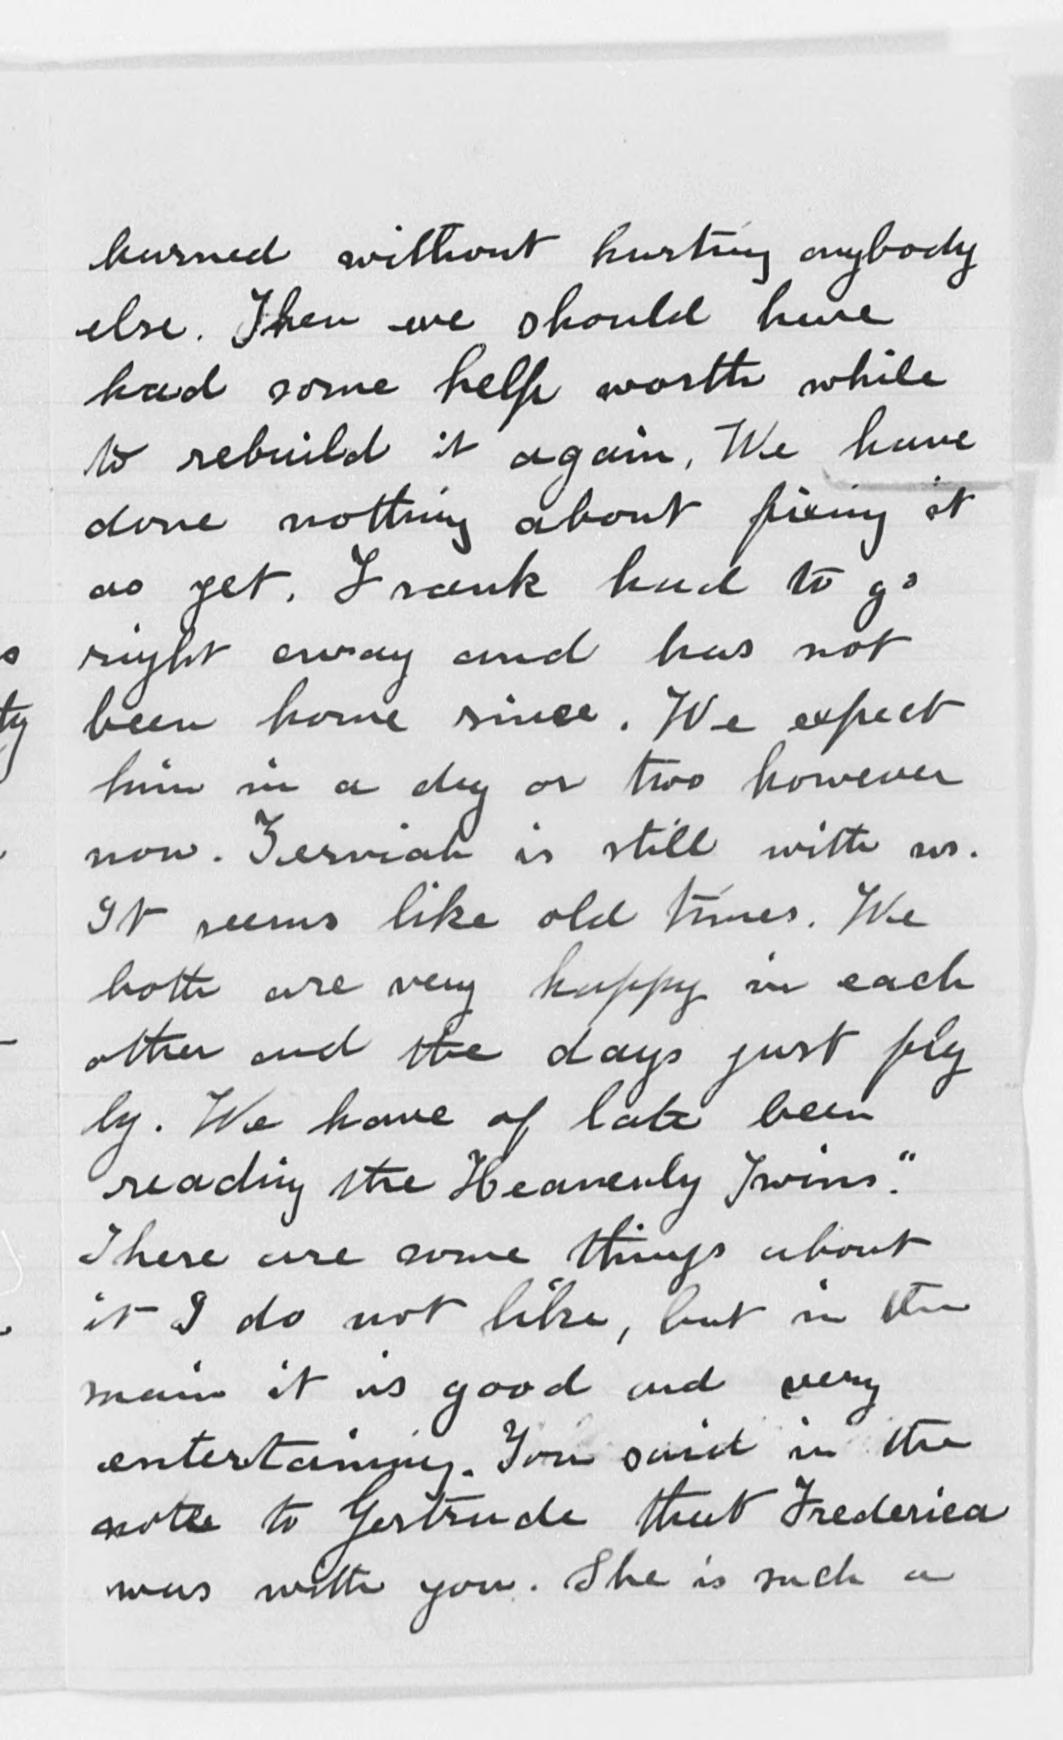 burned without hurting anybody
else. Then we should have
had some help worth while
to rebuild it again. We have
done nothing about fixing it
as yet. Frank had to go
right away and has not
been home since. We expect
him in a day or two however
now. Zerviah is still with us.
It seems like old times. We
both are very happy in each
other and the days just fly
by. We have of late been
reading the Heavenly Twins."
There are some things about
it I do not like, but in the
main it is good and very
entertaining. You said in the
note to Gertrude that Frederica
was with you. She is such a